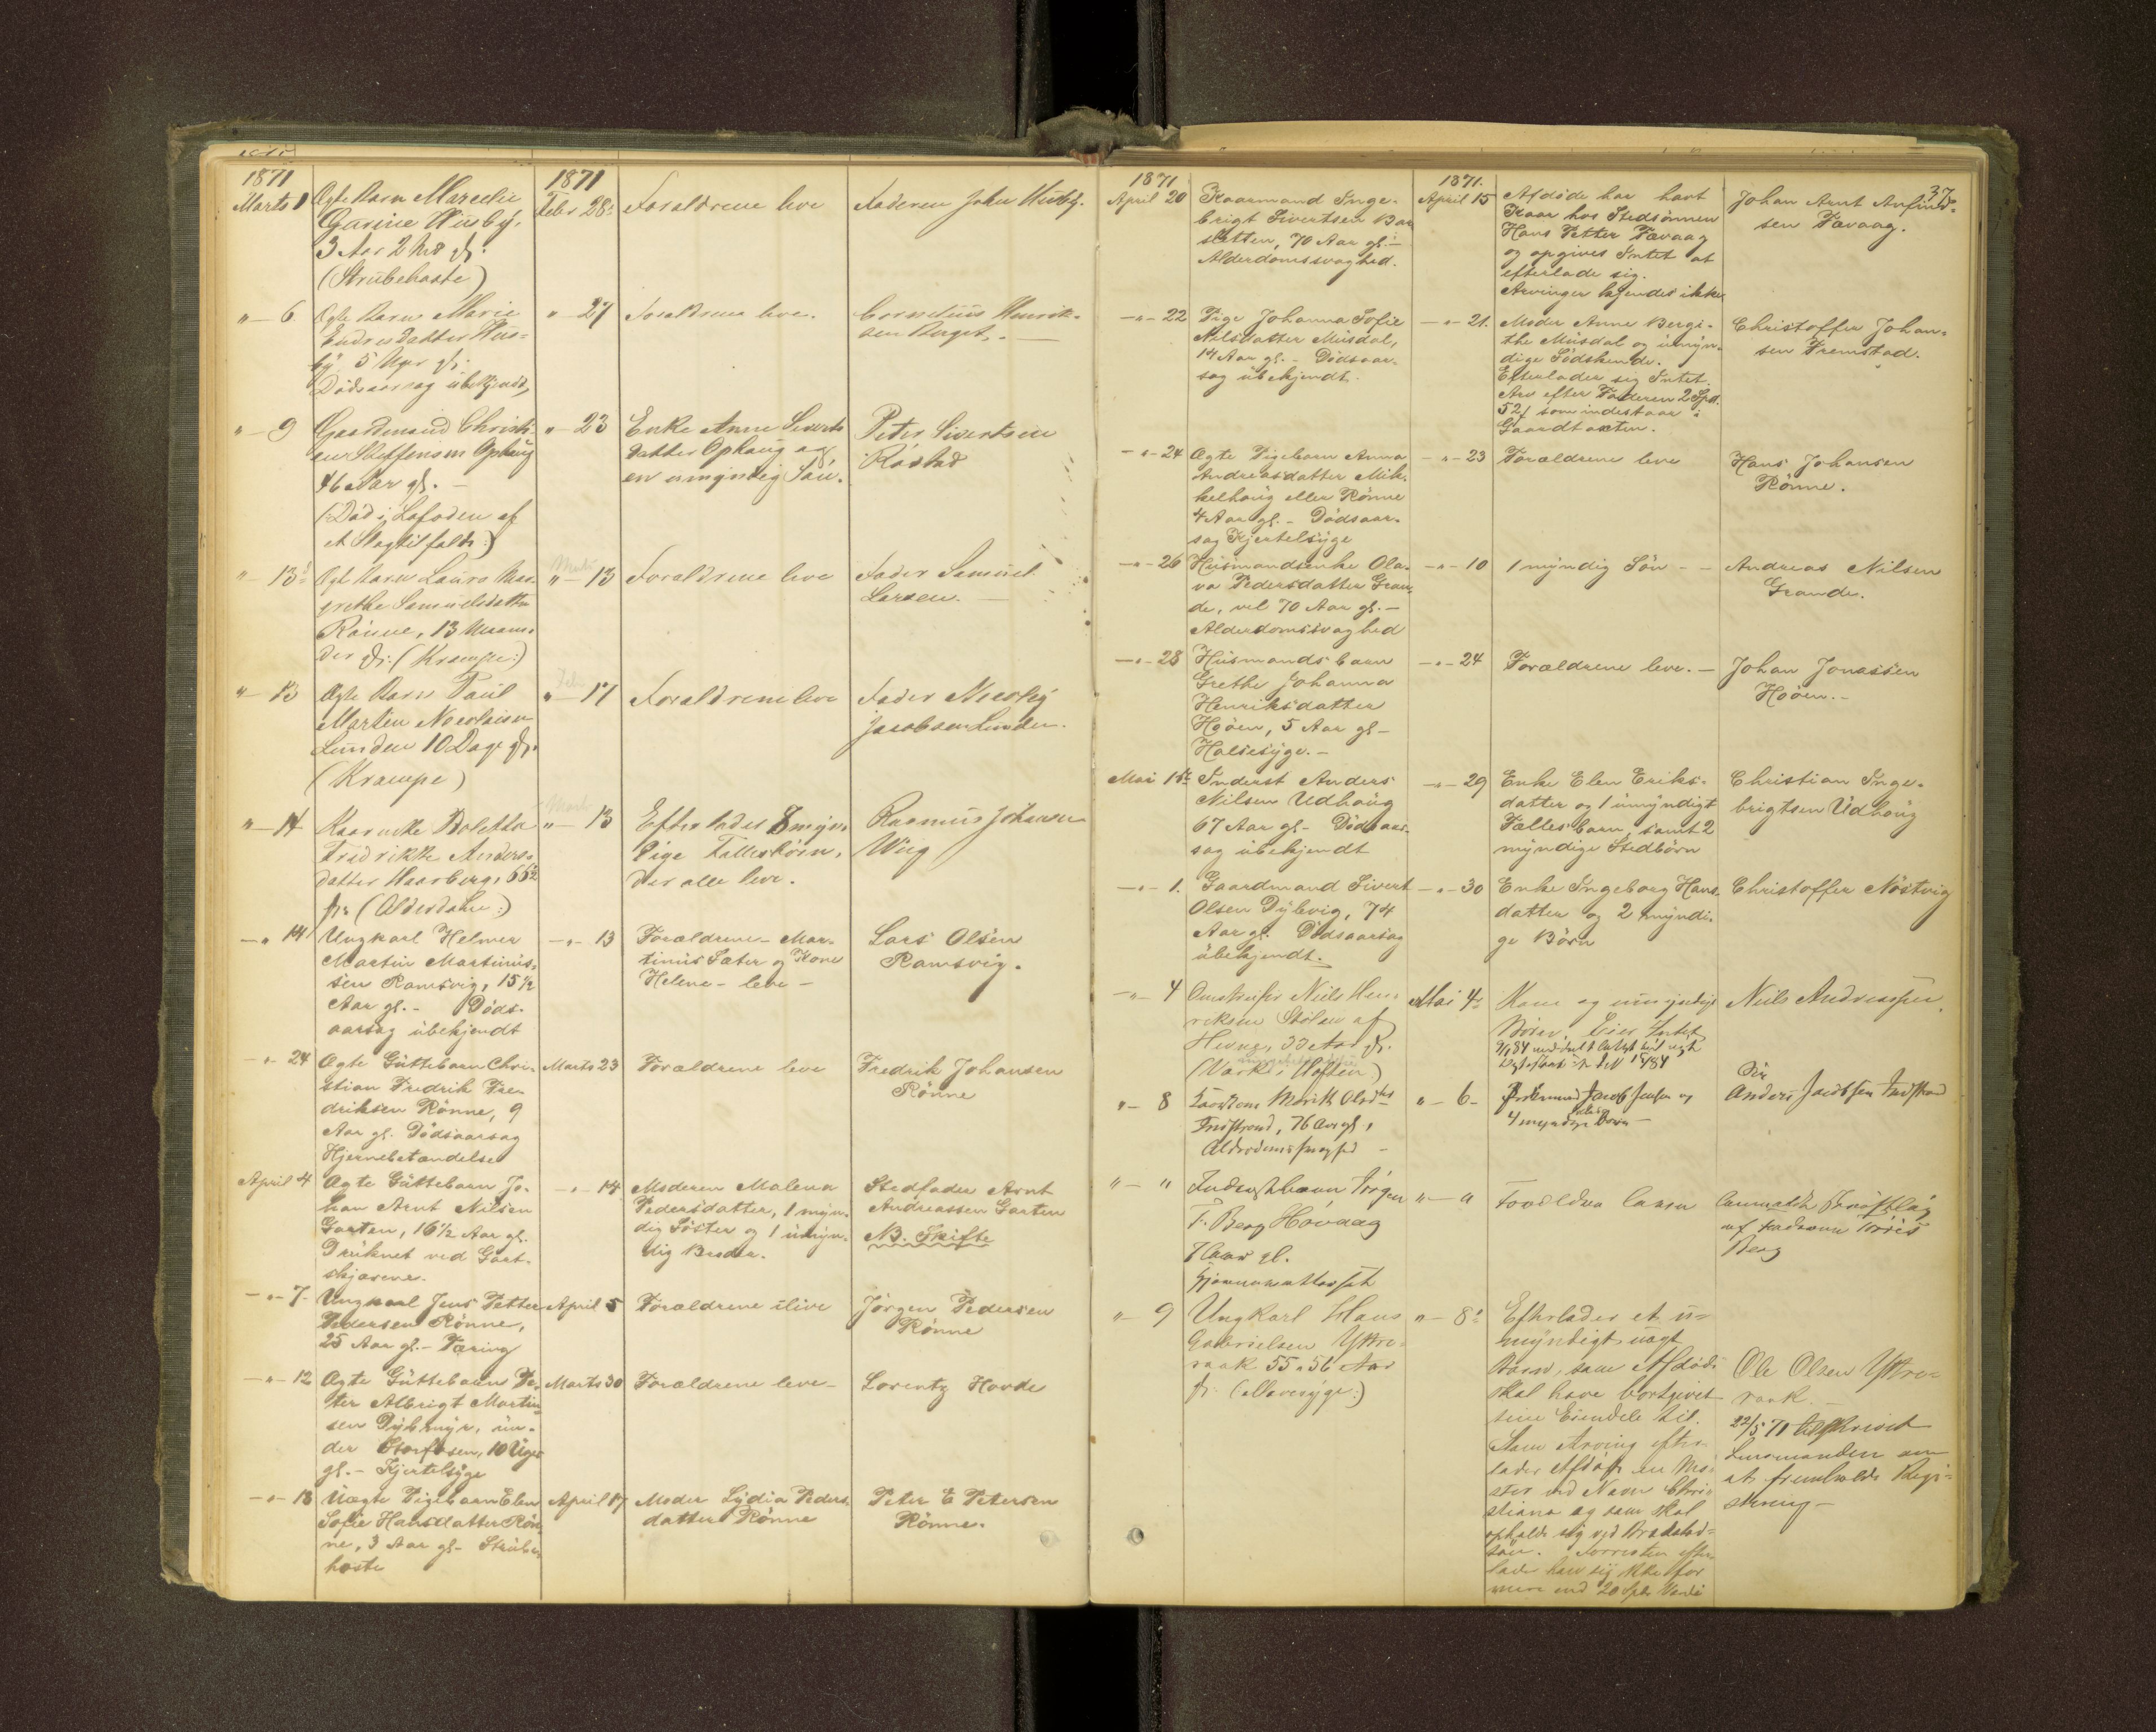 1871
Marts 1
Ægte Barn Marcelie
Gurine Husby,
3 Aar 2 Mdr gl.
(Strubehoste)
1871
Febr 28
Forældrene leve
Faderen John Husby.
" — 6
Ægte Barn Marie
Endresdatter Hus-
by 5 Uger gl.
Dødsaarsag ubekjendt,
" — 27
Forældrene leve.
Cornelius Henrik-
sen Berget. —
" — 9
Gaardmand Christi-
an Steffensen Ophaug
46 Aar gl. —
(: Død i Lofoden af
et Slagtilfælde :)
" — 23
Enke Anne Siverts
datter Ophaug og
en umyndig Søn.
Peter Sivertsen
Røstad
" — 13
Ægte Barn Laura Mar-
grethe Samuelsdatter
Rønne, 13 Maane-
der gl: (Krampe:)
Marts
" — 13
Forældrene leve
Fader Samuel
Larsen. —
" — 13
Ægte Barn Paul
Martin Nicolaisen
Lunden 10 Dage gl.
(Krampe)
Feb
" — 17
Forældrene leve
Fader Nicolay
Jacobsen Lunden.
" — 14
Kaarenke Boletta
Fredrikke Anders-
datter Haarberg, 66½
gl. (Alderdom:)
Marts
" — 13
Efterlader 8 myn-
dige Fællesbørn,
der alle leve.
Rasmus Johansen
Wiig
— " 14
Ungkarl Helmer
Martin Martinus-
sen Ramsvig, 15½
Aar gl. - Døds-
aarsag ubekjendt
— " — 13
Forældrene - Mar-
tinus Sæter og Kone
Helene - leve —
Lars Olsen
Ramsvig.
— " — 24
Ægte Guttebarn Chri-
stian Fredrik Fre-
driksen Rønne, 9
Aar gl. Dødsaarsag
Hjernebetændelse
Marts 23
Forældrene leve
Fredrik Johansen
Rønne
April 4
Ægte Guttebarn Jo-
han Arnt Nilsen
Garten, 16½ Aar gl.
Druknet ved Gart-
skjærene.
— " — 14
Moderen Malena
Pedersdatter, 1 myn-
dig Søster og 1 umyn-
dig Broder.
Stedfader Arnt
Andreassen Garten
NB. Skifte
— " — 7 -
Ungkarl Jens Petter
Pedersen Rønne,
25 Aar gl. - Tæring
April 5
Forældrene ilive
Jørgen Pedersen
Rønne
— " — 12
Ægte Guttebarn Pe-
ter Albrigt Martin-
sen Dybmyr, un-
der Storfosen, 10 Uger
gl. - Kjertelsyge
Marts 30
Forældrene leve -
Lorentz Hovde
— " — 18
Uægte Pigebarn Elen
Sofie Hansdatter Røn-
ne, 3 Aar gl - Strube-
hoste
April 17
Moder Lydia Peders-
datter Rønne
Peter E Petersen
Rønne.
37
1871
April 20
Kaarmand Inge-
brigt Sivertsen Bar
sletten, 70 Aar gl. -
Alderdomssvaghed.
1871.
April 15
Afdøde har havt
Kaar hos Stedsønnen
Hans Petter Tavaag
og opgives Intet at
efterlade sig.
Arvinger kjendes ikke
Johan Arnt Anfind-
sen Tavaag.
— " — 22
Pige Johanna Sofie
Nilsdatter Musdal,
14 Aar gl. - Dødsaar-
sag ubekjendt.
— " — 21.
Moder Anne Bergi-
the Musdal og umyn-
dige Sødskende.
Efterlader sig Intet.
Arv efter Faderen 2 Spd.
52 ß som indestaar i
Gaardtaxten.
Christoffer Johan-
sen Fremstad.
— " — 24
Ægte Pigebarn Anna
Andreasdatter Mik-
kelhaug eller Rønne
4 Aar gl. - Dødsaar-
sag Kjertelsyge
— " — 23
Forældrene leve
Hans Johansen
Rønne.
— " — 26
Husmandsenke Ola-
va Pedersdatter Gran-
de, vel 70 Aar gl. -
Alderdomssvaghed
— " — 10
1 myndig Søn - -
Andreas Nilsen
Grande.
— " — 28
Husmandsbarn
Grethe Johanna
Henriksdatter
Hoøen, 5 Aar gl -
Halsesyge. -
— " — 24
Forældrene leve. -
Johan Jonassen
Hoøen. -
Mai 1ste
Inderst Anders
Nilsen Udhaug
67 Aar gl - Dødsaar-
sag ubekjendt
— " — 29
Enke Elen Eriks-
datter og 1 umyndigt
Fællesbarn, samt 2
myndige Stedbørn
Christian Inge-
brigtsen Udhaug
— " — 1.
Gaardmand Sivert
Olsen Dybvig, 74
Aar gl. Dødsaarsag
ubekjendt. -
— " — 30
Enke Ingeborg Hans-
datter og 2 myndi-
ge Børn
Christoffer Nøstvig
— " — 4
Niels Hen-
riksen Stølen af
Hevne, 33 Aar gl.
Mai 4
Kone og umyndige
Børn. Eier Intet
Niels Andreassen
" — 8
Marith Olsdtr
76 Aar gl,
Alderdomssvaghed -
" — 6 -
Jacob Jensen og
4 myndige Børn -
Søn
Anders Jacobsen
" — "
Jørgen
T. Berg Hovaag
7 Aar gl.
" — "
Forældre
af Faderen Tørris
Berg
" — 9
Ungkarl Hans
Gabrielsen Yttre-
raak 55 a 56 Aar
gl. (Mavesyge:)
" — 8
Efterlader et u-
myndigt uægt
Barn, som Afdøde
skal have bortgivet
sine Eiendele til.
Som Arving efter-
lader Afdøde en Sø-
ster ved Navn Chri-
stiana og som skal
opholde sig ved
Forresten efter-
lader han sig ikke for
mere end 20 Spd Værdi
Ole Olsen Yttre-
raak. —
22/5 71 tilskrevet
Lensmanden om
at fremholde Regi-
strering -